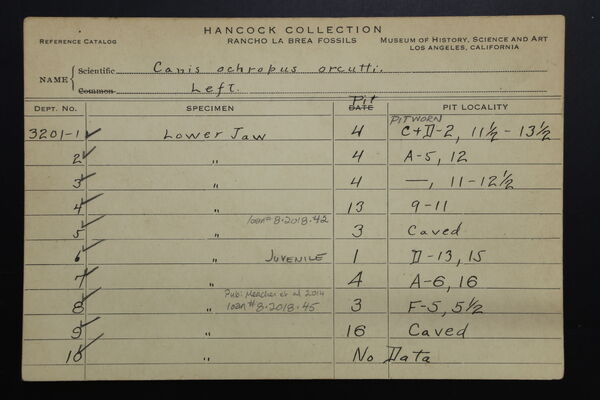 HANCOCK COLLECTION
REFERENCE CATALOG RANCHO LA BREA FOSSILS MUSEUM OF HISTORY, SCIENCE AND ART
LOS ANGELES, CALIFORNIA
NAME { Scientific Canis ochropus orcutti.
Common Left.
DEPT. NO. SPECIMEN Pit DATE PIT LOCALITY
PITWORN
3201-1 ✓ Lower Jaw 4 C+D-2, 11½ - 13½
2 ✓ " 4 A-5, 12
3 ✓ " 4 —, 11-12½
4 ✓ " 13 9-11
loan# 8-2018-42
5 ✓ " 3 Caved
6 ✓ " JUVENILE 1 D-13, 15
7 ✓ " 4 A-6, 16
Pub: Meachen et al 2014
8 ✓ " loan# 8-2018-45 3 F-5, 5½
9 ✓ " 16 Caved
10 ✓ " No Data